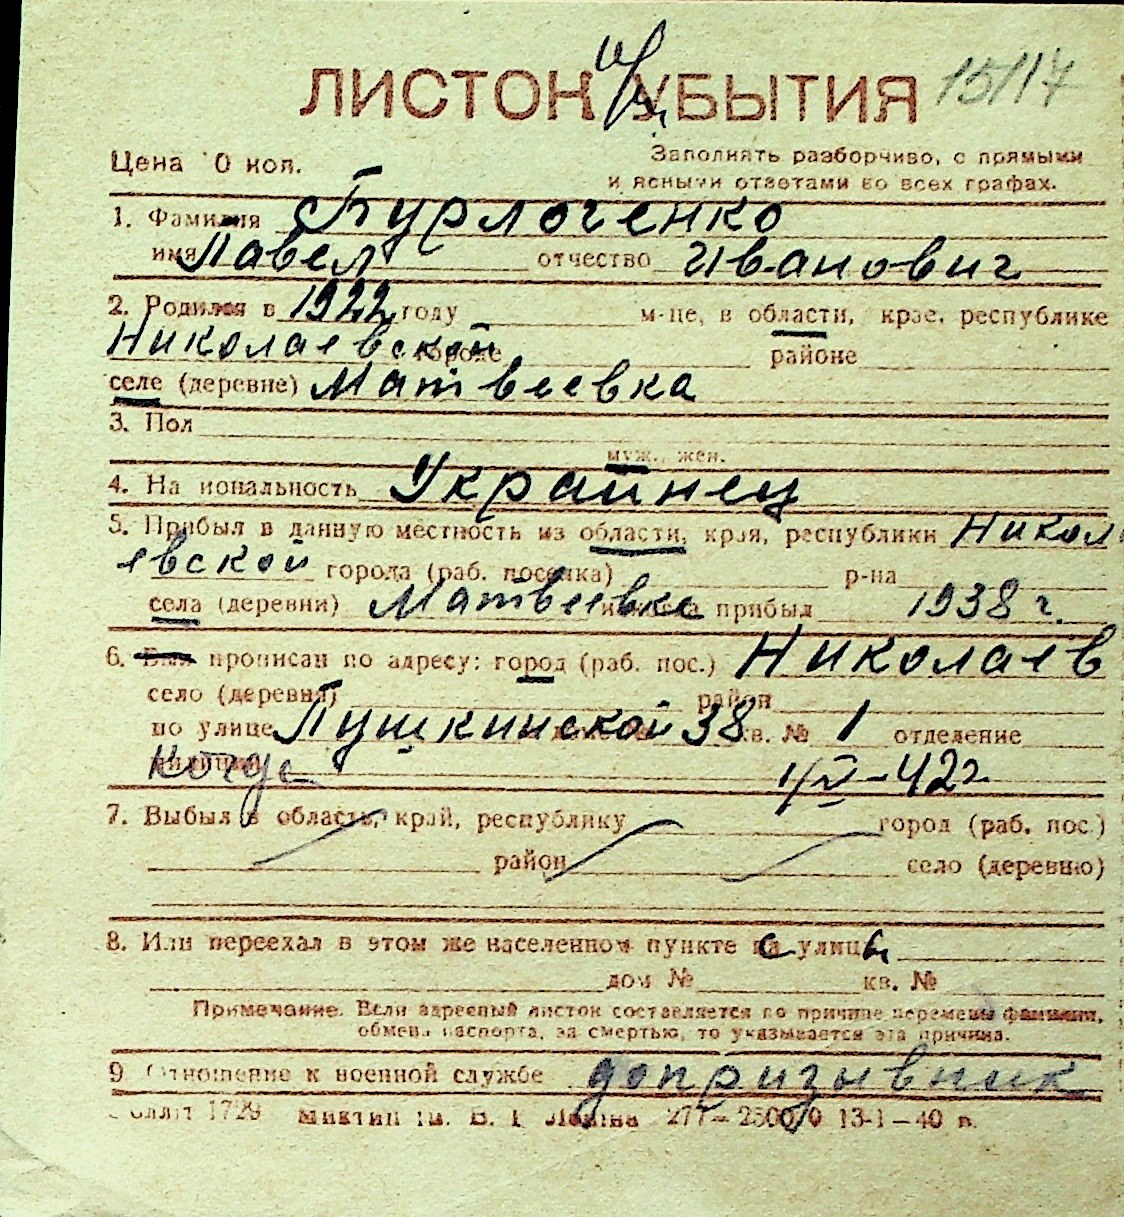 ЛИСТОК УБЫТИЯ 15/17
Цена 10 коп.
Заполнять разборчиво, с прямыми
и ясными ответами во всех графах.
1. Фамилия Бурлаченко
имя Павел отчество Иванович
2. Родился в 1922 году м-це, в области, крае, республике
Николаевской городе районе
селе (деревне) Матвеевка
3. Пол
муж., жен.
4. Национальность Украйнец
5. Прибыл в данную местность из области, края, республики Никол
аевской города (раб. поселка) р-на
села (деревни) Матвеевка прибыл 1938 г.
6. Был прописан по адресу: город (раб. пос.) Николаев
село (деревня) район
по улице Пушкинской 38 кв. № 1 отделение
милиции Когда 1/IV-42г
7. Выбыл в область, край, республику город (раб. пос.)
район село (деревню)
8. Или переехал в этом же населенном пункте на улицу
дом № кв. №
Примечание. Если адресный листок составляется по причине перемены фамилии,
обмена паспорта, за смертью, то указывается эта причина.
9 Отношение к военной службе допризывник
1729 им. В. Ленина 277- 13-1-40 в.